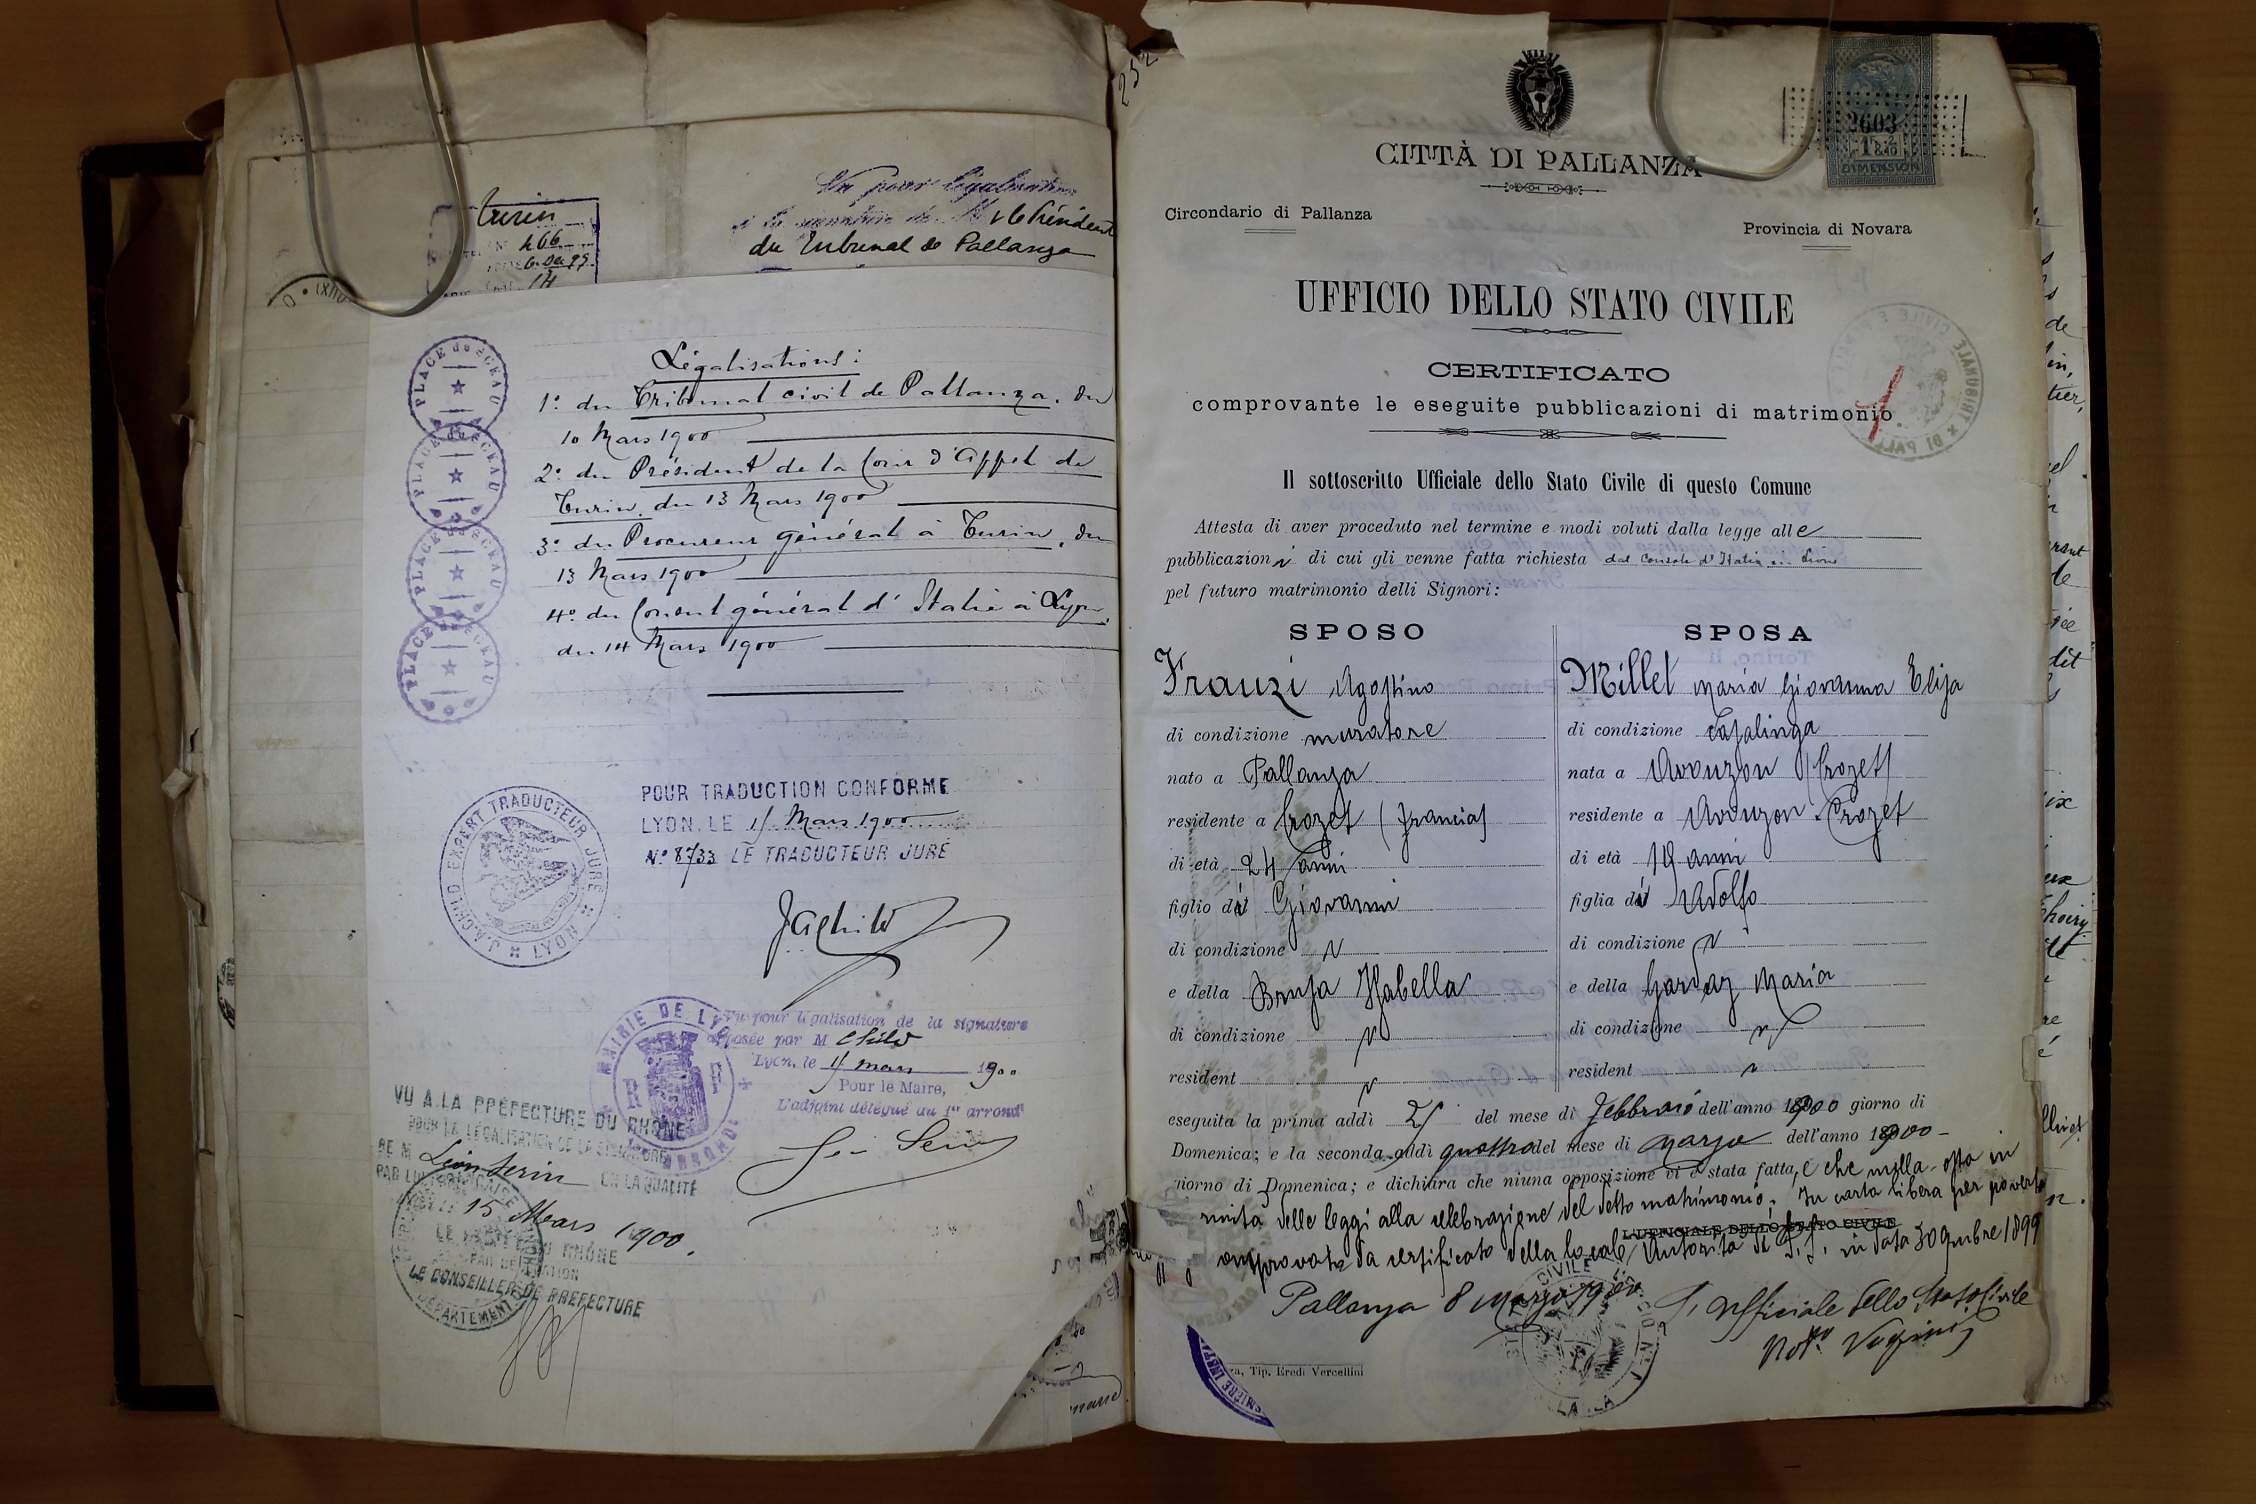 Turin
466
6. Dec 99.
14
Vu pour légalisation
du Tribunal de Pallanza
Légalisations:
1º. du Tribunal civil de Pallanza, du
10 Mars 1900
2º. du Président de la Cour d'Appel de
Turin, du 13 Mars 1900
3º. du Procureur général à Turin, du
13 Mars 1900
4º. du Consul général d'Italie à Lyon,
du 14 Mars 1900
PLACE du SCEAU
PLACE du SCEAU
PLACE du SCEAU
PLACE du SCEAU
POUR TRADUCTION CONFORME
LYON, LE 15 Mars 1900
Nº 8733 LE TRADUCTEUR JURÉ
J.A. CHILD EXPERT TRADUCTEUR JURÉ LYON
JAChild
MAIRIE DE LYON
R F
Vu pour légalisation de la signature
apposée par M Child
Lyon, le 15 mars 1900
Pour le Maire,
L'adjoint délégué au 1er arrondt
VU A LA PRÉFECTURE DU RHONE
POUR LA LÉGALISATION DE LA SIGNATURE
DE M Léon Serin EN LA QUALITÉ
15 Mars 1900.
LE CONSEILLER DE PREFECTURE
252
2603
DIMENSION
CITTÀ DI PALLANZA
Circondario di Pallanza
Provincia di Novara
UFFICIO DELLO STATO CIVILE
CERTIFICATO
comprovante le eseguite pubblicazioni di matrimonio
Il sottoscritto Ufficiale dello Stato Civile di questo Comune
Attesta di aver proceduto nel termine e modi voluti dalla legge alle
pubblicazioni di cui gli venne fatta richiesta dal Console d'Italia in Lione
pel futuro matrimonio delli Signori:
SPOSO
Franzi Agostino
di condizione muratore
nato a Pallanza
residente a Crozet (Francia)
di età 24 anni
figlio di Giovanni
di condizione
e della Brusa Isabella
di condizione
resident
SPOSA
Millet Maria Giovanna Elisa
di condizione casalinga
nata a Avouzon (Crozet)
residente a Avouzon Crozet
di età 19 anni
figlia di Adolfo
di condizione
e della Gardaz Maria
di condizione
resident
eseguita la prima addì 25 del mese di febbraio dell'anno 1900 giorno di
Domenica; e la seconda addì quattro del mese di marzo dell'anno 1900
giorno di Domenica; e dichiara che niuna opposizione vi è stata fatta, e che nulla osta in
mita delle leggi alla celebrazione del detto matrimonio. In carta libera per povertà
L'UFFICIALE DELLO STATO CIVILE
comprovata da certificato della locale Autorità di P. S. in data 30 9mbre 1899
Pallanza 8 marzo 1900 L'Ufficiale dello Stato Civile
Tip. Eredi Vercellini